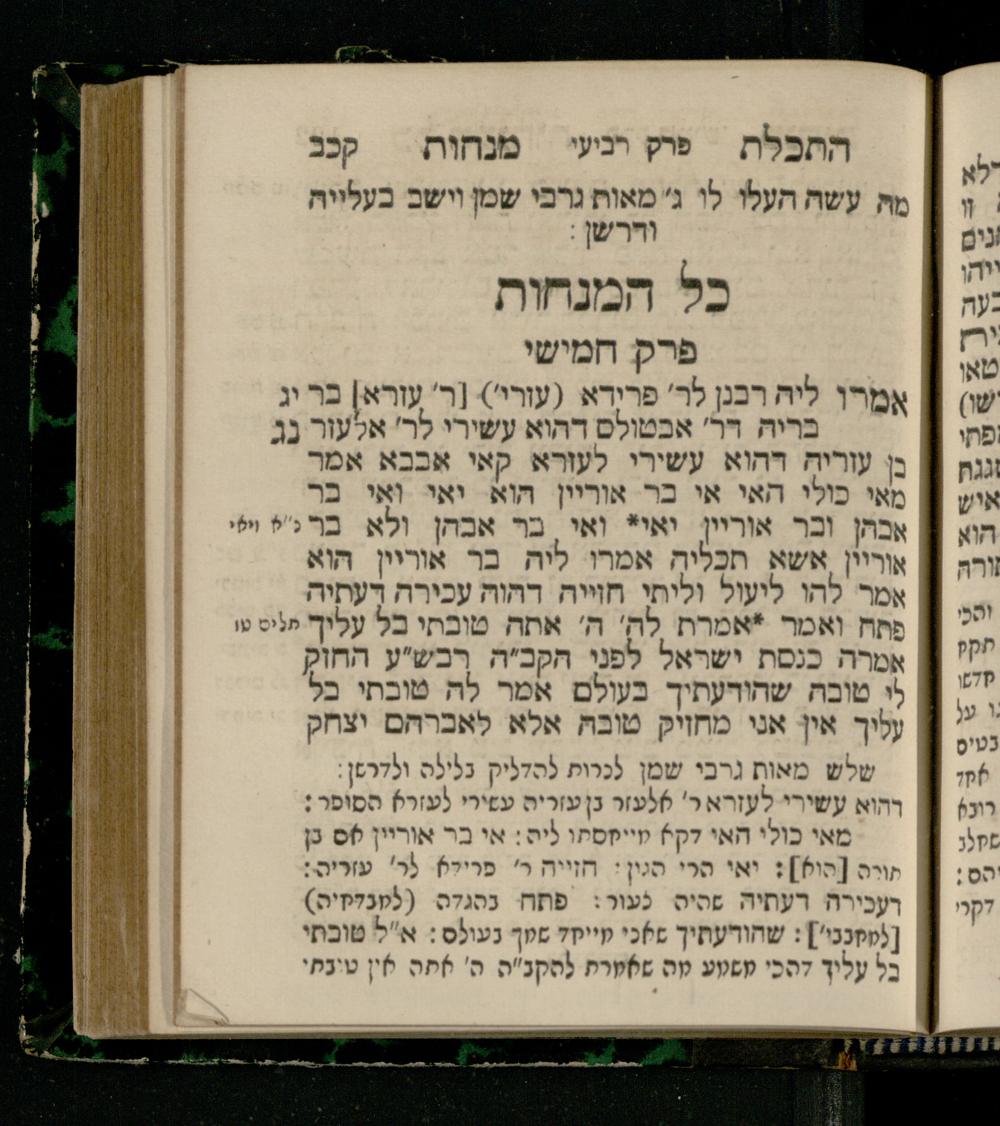 התכלת פרק רביעי מנחות קכב
מה עשה העלו לו ג׳ מאות גרבי שמן וישב בעלייה
ודרשן :
כל המנחות
פרק חמישי
אמרו ליה רבנן לר׳ פרידא (עזרי׳) [ר׳ עזרא] בר יג
בריה דר׳ אבטולס דהוא עשירי לר׳ אלעזר נג
בן עזריה דהוא עשירי לעזרא קאי אבבא אמר
מאי כולי האי אי בר אוריין הוא יאי ואי בר
אבהן ובר אוריין יאי* ואי בר אבהן ולא בר נ״א ויאי
אוריין אשא תכליה אמרו ליה בר אוריין הוא
אמר להו ליעול וליתי חזייה דהוה עכירה דעתיה
פתח ואמר *אמרת לה׳ ה׳ אתה טובתי בל עליך תלים טו
אמרה כנסת ישראל לפני הקב״ה רבש״ע החזק
לי טובה שהודעתיך בעולם אמר לה טובתי בל
עליך אין אני מחזיק טובה אלא לאברהם יצחק
שלש מאות גרבי שמן לנרות להדליק בלילה ולדרשן :
דהוא עשירי לעזרא ר׳ אלעזר בן עזריה עשירי לעזרא הסופר :
מאי כולי האי דקא מייחסתו ליה : אי בר אוריין אם בן
תורה [הוא] : יאי הרי הגון : חזייה ר׳ פרידא לר׳ עזריה :
דעכירה דעתיה שהיה נעור : פתח בהגדה (למבדחיה)
[למחבבי׳] : שהודעתיך שאני מייחד שמך בעולם : א״ל טובתי
בל עליך דהכי משמע מה שאמרת להקב״ה ה׳ אתה אין טובתי